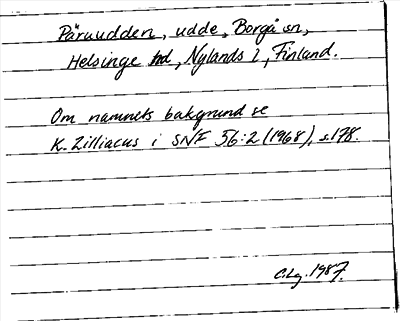 Päruudden, udde, Borgå sn,
Helsinge hd, Nylands l, Finland.
Om namnets bakgrund se
K. Zilliacus i SNF 56:2 (1968), s.178.
C.Lg. 1987.